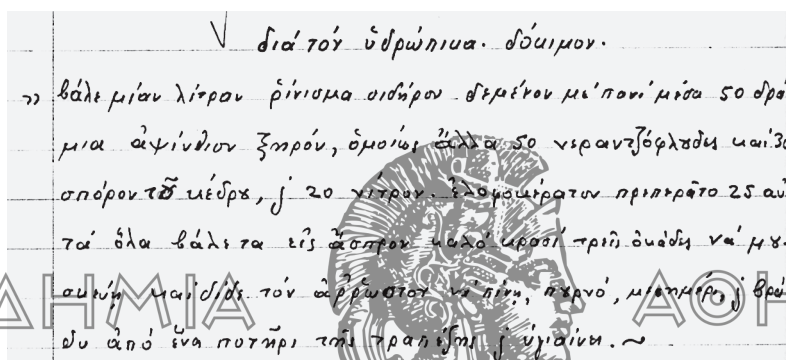 διά τόν ὑδρώπικα. δόκιμον.
βάλε μίαν λίτραν ῥίνισμα σιδήρου δεμένον μέ πανί μέσα 50 δρά
μια ἀψίνθιον ξηρόν, ὁμοίως ἄλλα 50 νεραντζόφλυδες καί 30
σπόρον τȣ κέδρȣ, ϗ 20 νίτρον. ἐλαφοκέρατον πρεπεράτο 25 αὐ
τά ὅλα βάλε τα εἰς ἄσπρον καλό κρασί τρεῖς ὀκάδες νά μȣ
σκεύῃ καί δίδε τόν ἄῤῥωστον νά πίνῃ, πυρνό, μεσημέρι, ϗ βρά
δυ ἀπό ἕνα ποτήρι τῆς τραπέζης ϗ ὑγιαίνει. ~
ΔΗΜΙΑ ΑΘΗ